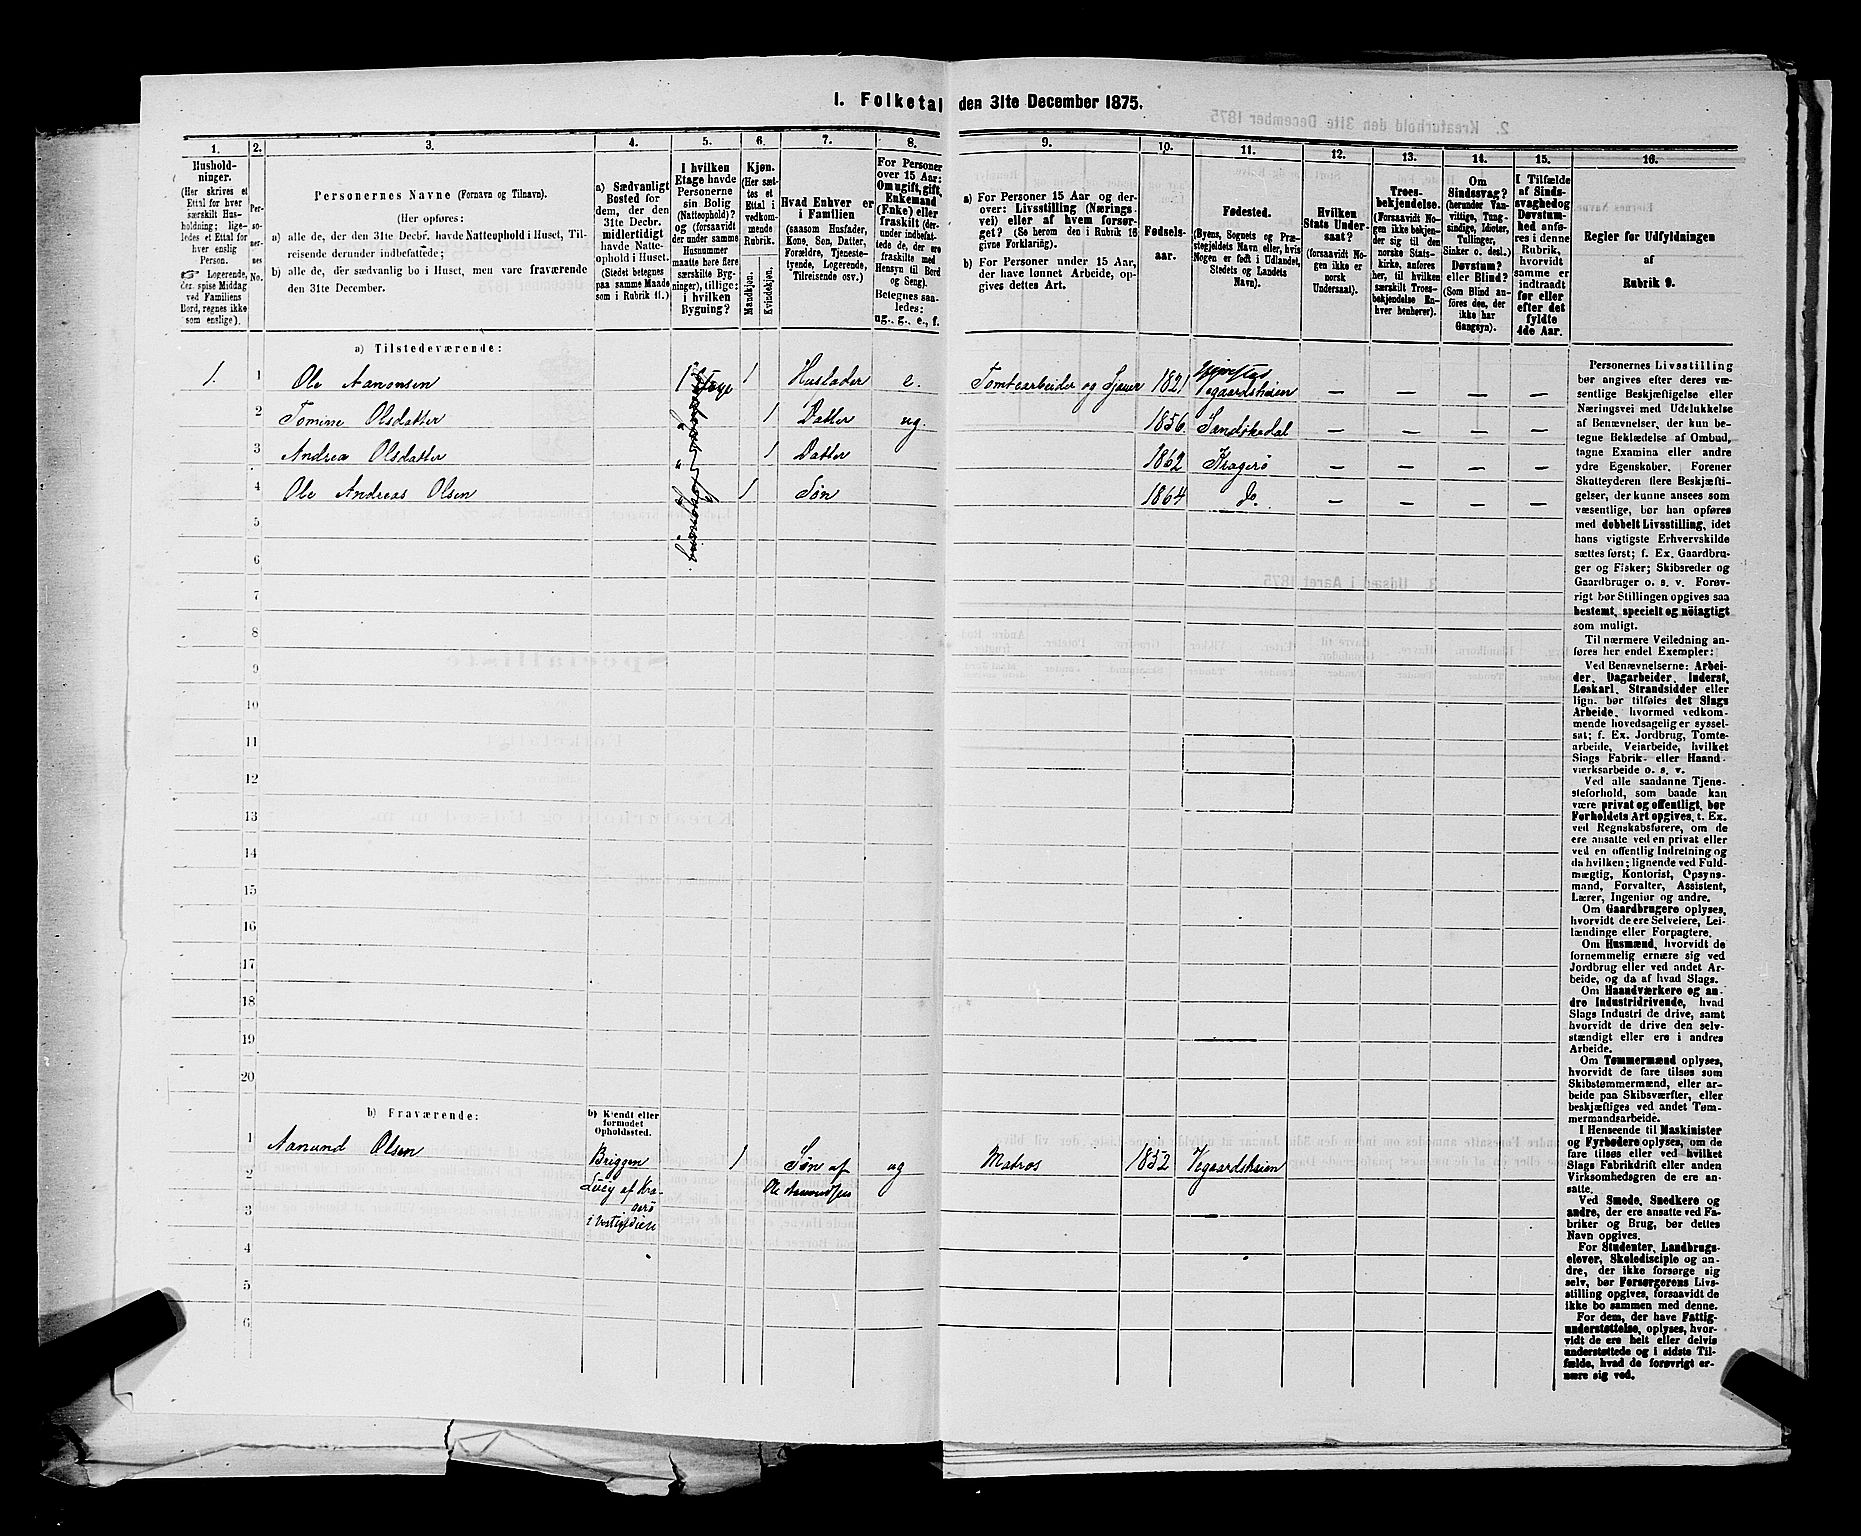 1. Folketal den 31te December 1875.
1.
Hushold-
ninger.
(Her skrives et
Ettal for hver
særskilt Hus-
holdning; lige-
ledes et Ettal for
hver enslig
Person.
☞ Logerende,
der spise Middag
ved Familiens
Bord, regnes ikke
som enslige).
2.
Per-
so-
ner-
nes
No.
3.
Personernes Navne (Fornavn og Tilnavn).
(Her opføres:
a) alle de, der den 31te Decbr. havde Natteophold i Huset, Til-
reisende derunder indbefattede;
b) alle de, der sædvanlig bo i Huset, men vare fraværende
den 31te December.
4.
a) Sædvanligt
Bosted for
dem, der den
31te Decbr.
midlertidigt
havde Natte-
ophold i Huset.
(Stedet betegnes
paa samme Maade
som i Rubrik 11.)
5.
I hvilken
Etage havde
Personerne
sin Bolig
(Natteophold)?
og (forsaavidt
der under samme
Husnummer
maatte høre flere
særskilte Byg-
ninger), tillige:
i hvilken
Bygning?
6.
Kjøn.
(Her sæt-
tes et
Ettal i
vedkom-
mende
Rubrik.
Mandkjøn.
Kvindekjøn.
7.
Hvad Enhver er
i Familien
(saasom Husfader,
Kone, Søn, Datter,
Forældre, Tjeneste-
tyende, Logerende,
Tilreisende osv.)
8.
For Personer
over 15 Aar:
Om ugift, gift,
Enkemand
(Enke) eller
fraskilt (der-
under indbefat-
tede de, der ere
fraskilte med
Hensyn til Bord
og Seng).
Betegnes saa-
ledes:
ug., g., e., f.
9.
a) For Personer 15 Aar og der-
over: Livsstilling (Nærings-
vei) eller af hvem forsør-
get? (Se herom den i Rubrik 16
givne Forklaring).
b) For Personer under 15 Aar,
der have lønnet Arbeide, op-
gives dettes Art.
10.
Fødsels-
aar.
11.
Fødested.
(Byens, Sognets og Præ-
stegjeldets Navn eller, hvis
Nogen er født i Udlandet,
Stedets og Landets
Navn).
12.
Hvilken
Stats Under-
saat?
(forsaavidt No-
gen ikke er
norsk
Undersaat).
13.
Troes-
bekjendelse.
(Forsaavidt No-
gen ikke bekjen-
der sig til den
norske Stats-
kirke, anføres
her, til hvilken
særskilt Troes-
bekjendelse En-
hver henhører).
14.
Om
Sindssvag?
(herunder Van-
vittige, Tung-
sindige, Idioter,
Tullinger,
Sinker o. desl.)
Døvstum?
eller Blind?
(Som Blind an-
føres den, der
ikke har
Gangsyn).
15.
I Tilfælde
af Sinds-
svaghed og
Døvstum-
hed anfø-
res i denne
Rubrik,
hvorvidt
samme er
indtraadt
før eller
efter det
fyldte
4de Aar.
16.
Regler for Udfyldningen
af
Rubrik 9.
a) Tilstedeværende:
1. 1 Ole Aanonsen 1 Etage 1 Husfader e. Tomtearbeider og 1821 Vegaardsheien — — — —
2 Tomine Olsdatter " 1 Datter ug. 1856. Sandøkedal — — — —
3 Andrea Olsdatter " 1 Datter 1862 Kragerø — — — —
4 Ole Andreas Olsen 1 Søn 1864 do. — — — —
5
6
7
8
9
10
11
12
13
14
15
16
17
18
19
20
b) Fraværende:
b) Kjendt eller
formodet
Opholdssted.
1 Aanund Olsen Briggen 1 Søn af ug Matros 1852 Vegaardsheien
2 Lucy af Kra- Ole
3 gerø
i Vestindien
4
5
6
Personernes Livsstilling
bør angives efter deres væ-
sentlige Beskjæftigelse eller
Næringsvei med Udelukkelse
af Benævnelser, der kun be-
tegne Beklædelse af Ombud,
tagne Examina eller andre
ydre Egenskaber. Forener
Skatteyderen flere Beskjæfti-
gelser, der kunne ansees som
væsentlige, bør han opføres
med dobbelt Livsstilling, idet
hans vigtigste Erhvervskilde
sættes først; f. Ex. Gaardbru-
ger og Fisker; Skibsreder og
Gaardbruger o. s. v. Forøv-
rigt bør Stillingen opgives saa
bestemt, specielt og nöiagtigt
som muligt.
Til nærmere Veiledning an-
føres her endel Exempler:
Ved Benævnelserne: Arbei-
der, Dagarbeider, Inderst,
Løskarl, Strandsidder eller
lign. bør tilføies det Slags
Arbeide, hvormed vedkom-
mende hovedsagelig er syssel-
sat; f. Ex. Jordbrug, Tomte-
arbeide, Veiarbeide, hvilket
Slags Fabrik- eller Haand-
værksarbeide o. s. v.
Ved alle saadanne Tjene-
steforhold, som baade kan
være privat og offentligt, bør
Forholdets Art opgives, t. Ex.
ved Regnskabsførere, om de
ere ansatte ved en privat eller
ved en offentlig Indretning og
da hvilken; lignende ved Fuld-
mægtig, Kontorist, Opsyns-
mand, Forvalter, Assistent,
Lærer, Ingeniør og andre.
Om Gaardbrugere oplyses,
hvorvidt de ere Selveiere, Lei-
lændinge eller Forpagtere.
Om Husmænd, hvorvidt de
fornemmelig ernære sig ved
Jordbrug eller ved andet Ar-
beide, og da af hvad Slags.
Om Haandværkere og an-
dre Industridrivende, hvad
Slags Industri de drive, samt
hvorvidt de drive den selv-
stændigt eller ere i andres
Arbeide.
Om Tømmermænd oplyses,
hvorvidt de fare tilsøs som
Skibstømmermænd, eller ar-
beide paa Skibsværfter, eller
beskjæftiges ved andet Tøm-
mermandsarbeide.
I Henseende til Maskinister
og Fyrbødere oplyses, om de
fare tilsøs eller ved hvilket
Slags Fabrikdrift eller anden
Virksomhedsgren de ere an-
satte.
Ved Smede, Snedkere og
andre, der ere ansatte ved Fa-
briker og Brug, bør dettes
Navn opgives.
For Studenter, Landbrugs-
elever, Skoledisciple og an-
dre, der ikke forsørge sig
selv, bør Forsørgerens Livs-
stilling opgives, forsaavidt de
ikke bo sammen med denne.
For dem, der have Fattig-
understøttelse, oplyses, hvor-
vidt de ere helt eller delvis
understøttede og i sidste Til-
fælde, hvad de forøvrigt er-
nære sig ved.